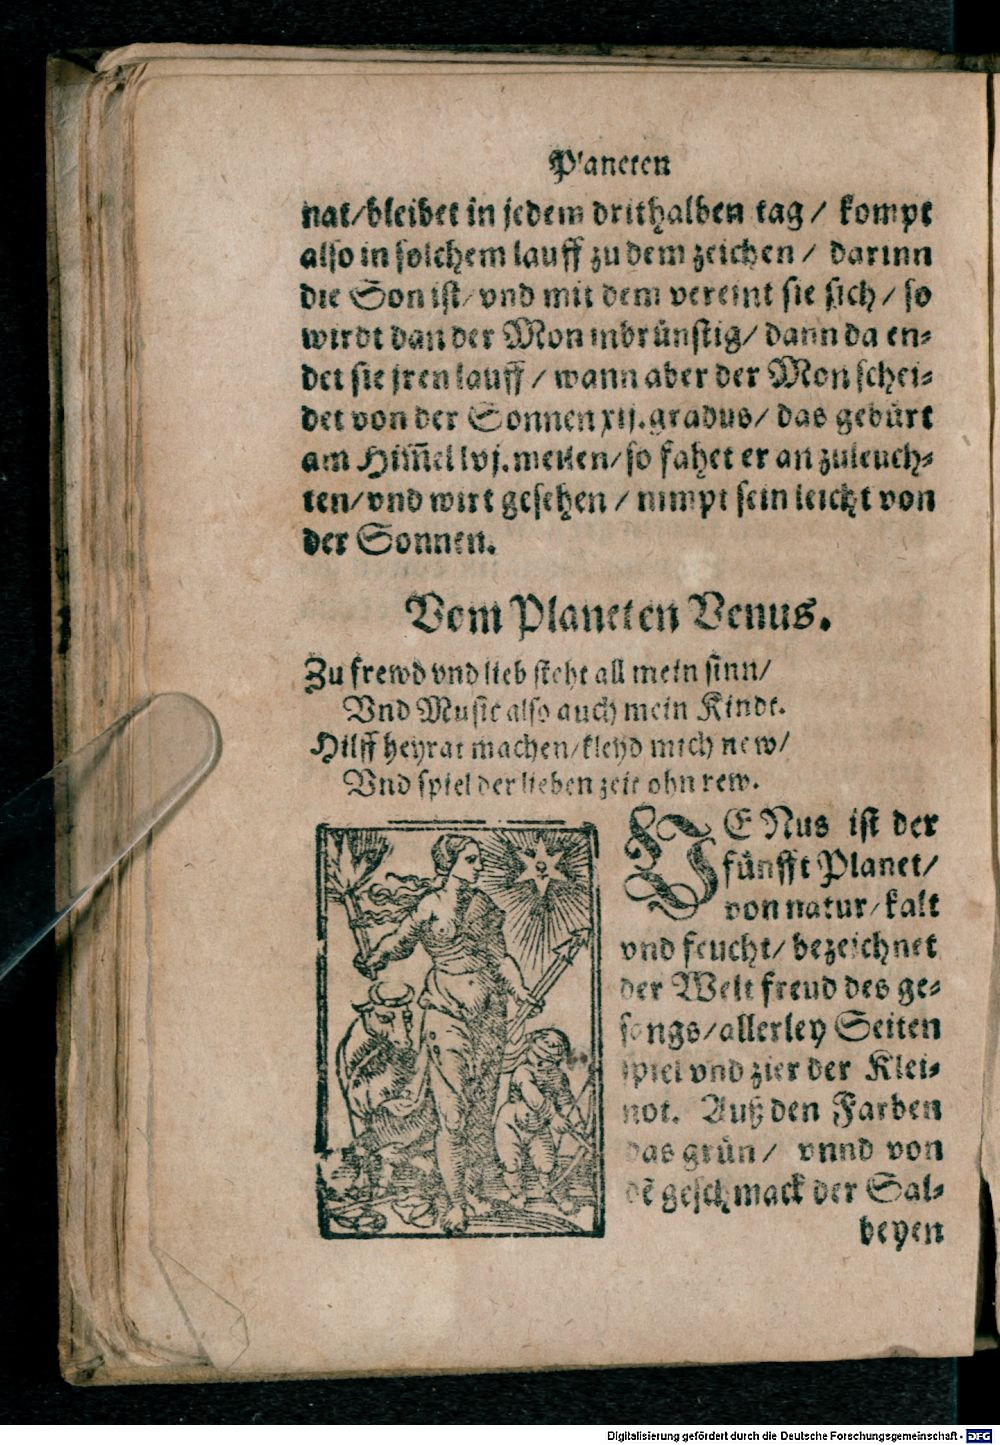 Planeten
nat/bleibet in jedem drithalben tag / kompt
also in solchem lauff zu dem zeichen / darinn
die Son ist/ vnd mit dem vereint sie sich / so
wirdt dan der Mon inbrünstig/ dann da en⸗
det sie jren lauff / wann aber der Mon schei⸗
det von der Sonnen xij. gradus/ das gebürt
am Him̃el lvj. meilen/ so fahet er an zuleuch⸗
ten/ vnd wirt gesehen / nimpt sein leicht von
der Sonnen.
Vom Planeten Venus.
Zu frewd vnd lieb steht all mein sinn/
Vnd Music also auch mein Kindt.
Hilff heyrat machen/ kleyd mich new/
Vnd spiel der lieben zeit ohn rew.
VENus ist der
fünfft Planet/
von natur/ kalt
vnd feucht/ bezeichnet
der Welt freud des ge⸗
sangs/ allerley Seiten
spiel vnd zier der Klei⸗
not. Auß den Farben
das grün/ vnnd von
dē geschmack der Sal⸗
beyen
Digitalisierung gefördert durch die Deutsche Forschungsgemeinschaft - DFG